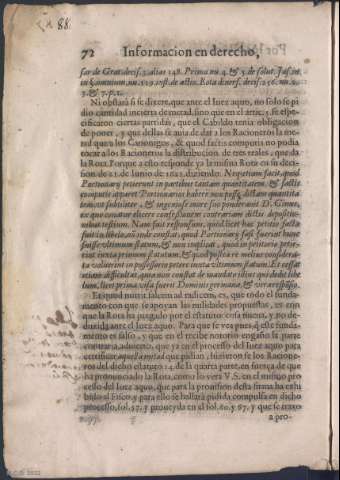 88.
72 Informacion en derecho,
sar de Grat. decis. 3. alias 148. Prima nu. 4. & 5. de solut.
in §. omnium, nu. 129. inst. de actio. Rota divers. decis. 256. nu.
3. & 7. p. 1.
Ni obstarà si se dixere, que ante el Iuez aquo, no solo se pi
dio cantidad incierta de metad, sino que en el artic. 5. se espe-
cificaron ciertas partidas, que el Cabildo tenia obligacion
de poner, y que dellas se auia de dar a los Racioneros la me
tad que a los Canonigos, & quod facti
tocar a los Racioneros la distribucion de tres reales, que da
la Rota. Porque a esto responde ya la misma Rota en su deci-
sion de 21. de Iunio de 1621. diziendo. Neque etiam facit, quod
Portionarij petierunt in partibus tantam quantitatem, & facile
compertu apparet Portionarios habere non posse, dictam quantita
temvt subtiliter, & ingeniose more suo ponderauit D.
ex quo conatur elicere confessionem contrariam dictis depositio-
nibus testium. Nam fuit responsum, quod licet hæc petitio facta
fuit in libello, nõ inde confessi, quod Portionarij fassi fuerint hunc
fuisse vltimum statum, & non implicat, quod in petitorio petie-
rint iuxta primum statum, & quod postea re melius considera-
ta voluerint in possessorio petere iuxta vltimum statum. Et cessat
etiam difficultas, quia non constat de mandato illius qui dedit libe
llum, licet prima visa fuerit Dominis germana, & vera responsio.
Et quod nutu salem ad radicem, es, que todo el funda-
mento con que se apoyan las nulidades propuestas, es con
que la Rota ha juzgado por el estatuto cosa nueua, y no de-
duzida ante el Iuez aquo. Para que se vea pues q̃ este funda-
mento es falso, y que en el recibe notorio engaño la parte
contraria, aduierto, que ya en el processo del Iuez aquo para
certificar aquella metad que pidian, hizieron se los Racione-
ros del dicho estatuto 14. de la quarta parte, en fuerça de que
ha pronunciado la Rota, como lo verà V. S. en el mismo pro
cesso del Iuez aquo, que para la prouision desta firma ha exhi
bido el Fisco, y para ello se hallarà pidida compulsa en dicho
processo, fol. 57. y proueyda en el fol. 60. y 67. y que se traxo
a pro-